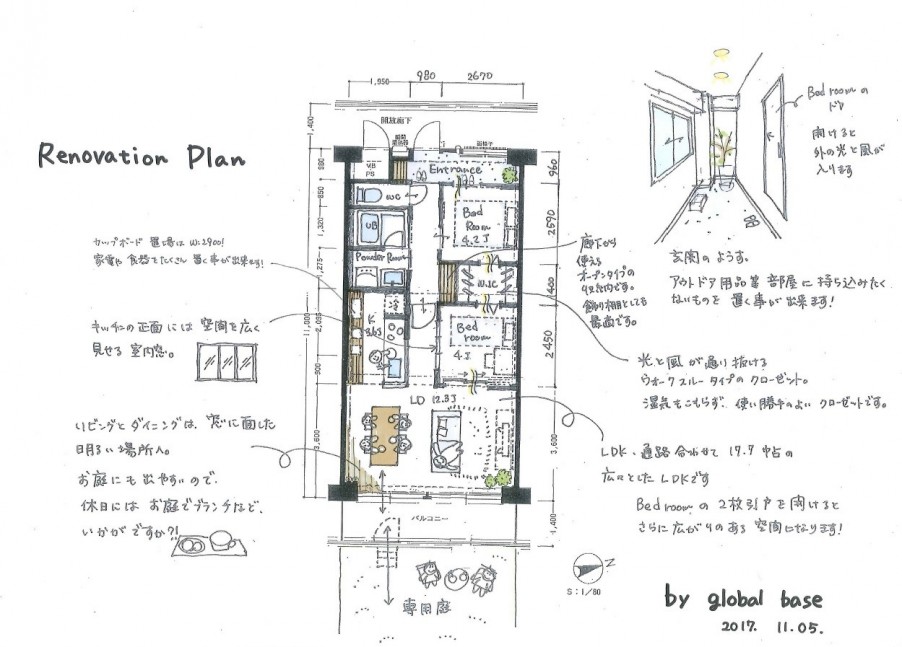 Renovation Plan
1,950
980
2670
1,400
開放廊下
980
850
1,320
1,275
11,000
2,095
900
3,600
960
2590
1400
2450
3,600
1,400
MB
PS
Entrance
WC
UB
Powder Room
Bed
Room
4.2J
W.I.C
K
3.6J
Bed
room
4J
LD 12.3J
バルコニー
専用庭
カップボード 置場は W=2900!
家電や食器をたくさん 置く事が出来ます!
キッチンの正面には 空間を広く
見せる 室内窓。
リビングとダイニングは、窓に面した
明るい場所へ。
お庭にも出やすいので、
休日には お庭でブランチなど、
いかがですか?!
Bed roomの
ドア
開けると
外の光と風が
入ります
玄関のようす。
アウトドア用品等 部屋に持ち込みたく
ないものを 置く事が出来ます!
廊下から
使える
オープンタイプの
収納です。
飾り棚としても
最適です。
光と風が通り抜ける
ウォークスルータイプのクローゼット。
湿気もこもらず、使い勝手のよい クローゼットです。
LDK、通路 合わせて 17.7帖の
広々とした LDKです
Bed roomの 2枚引戸を開けると
さらに広がりのある 空間になります!
Z
S:1/80
by global base
2017. 11.05.